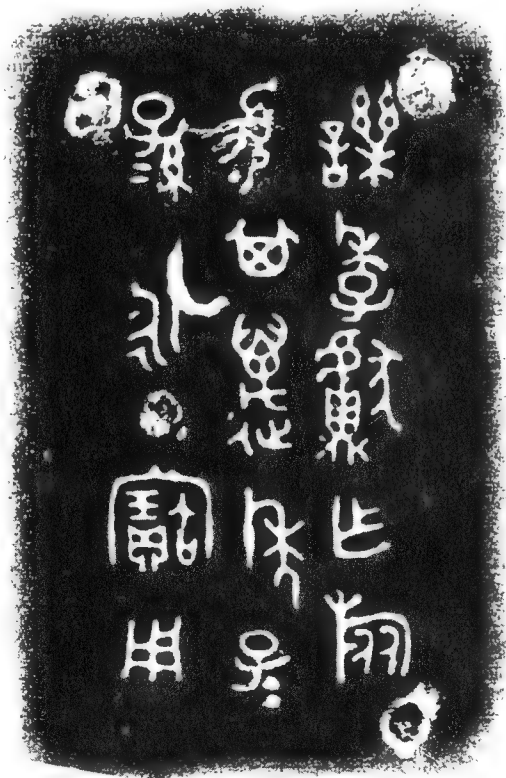 季獻乍旅
須其邁年子=
孫=永寶用